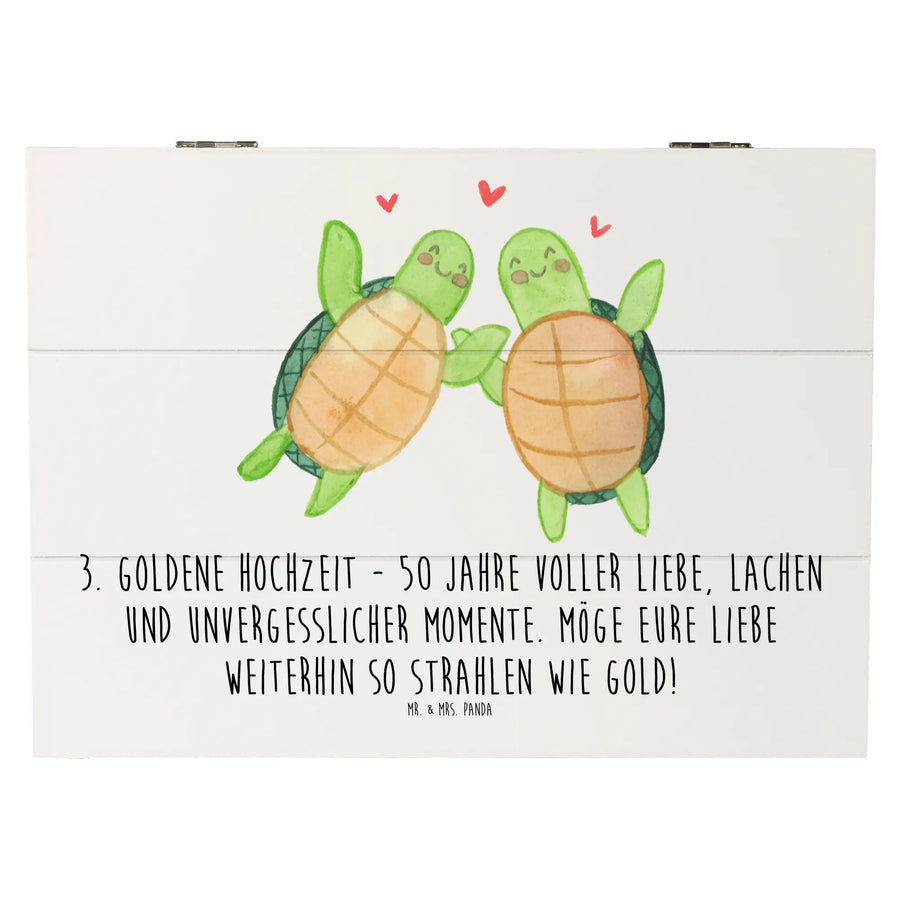 3. GOLDENE HOCHZEIT - 50 JAHRE VOLLER LIEBE, LACHEN
UND UNVERGESSLICHER MOMENTE. MÖGE EURE LIEBE
WEITERHIN SO STRAHLEN WIE GOLD!
MR. & MRS. PANDA